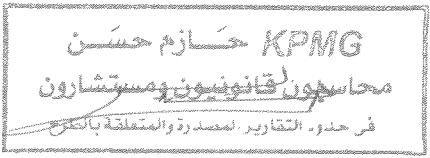 KPMG حازم حسن
محاسبون قانونيون ومستشارون
في حدود التقارير لمصدرة والمتعلقة بالطرح